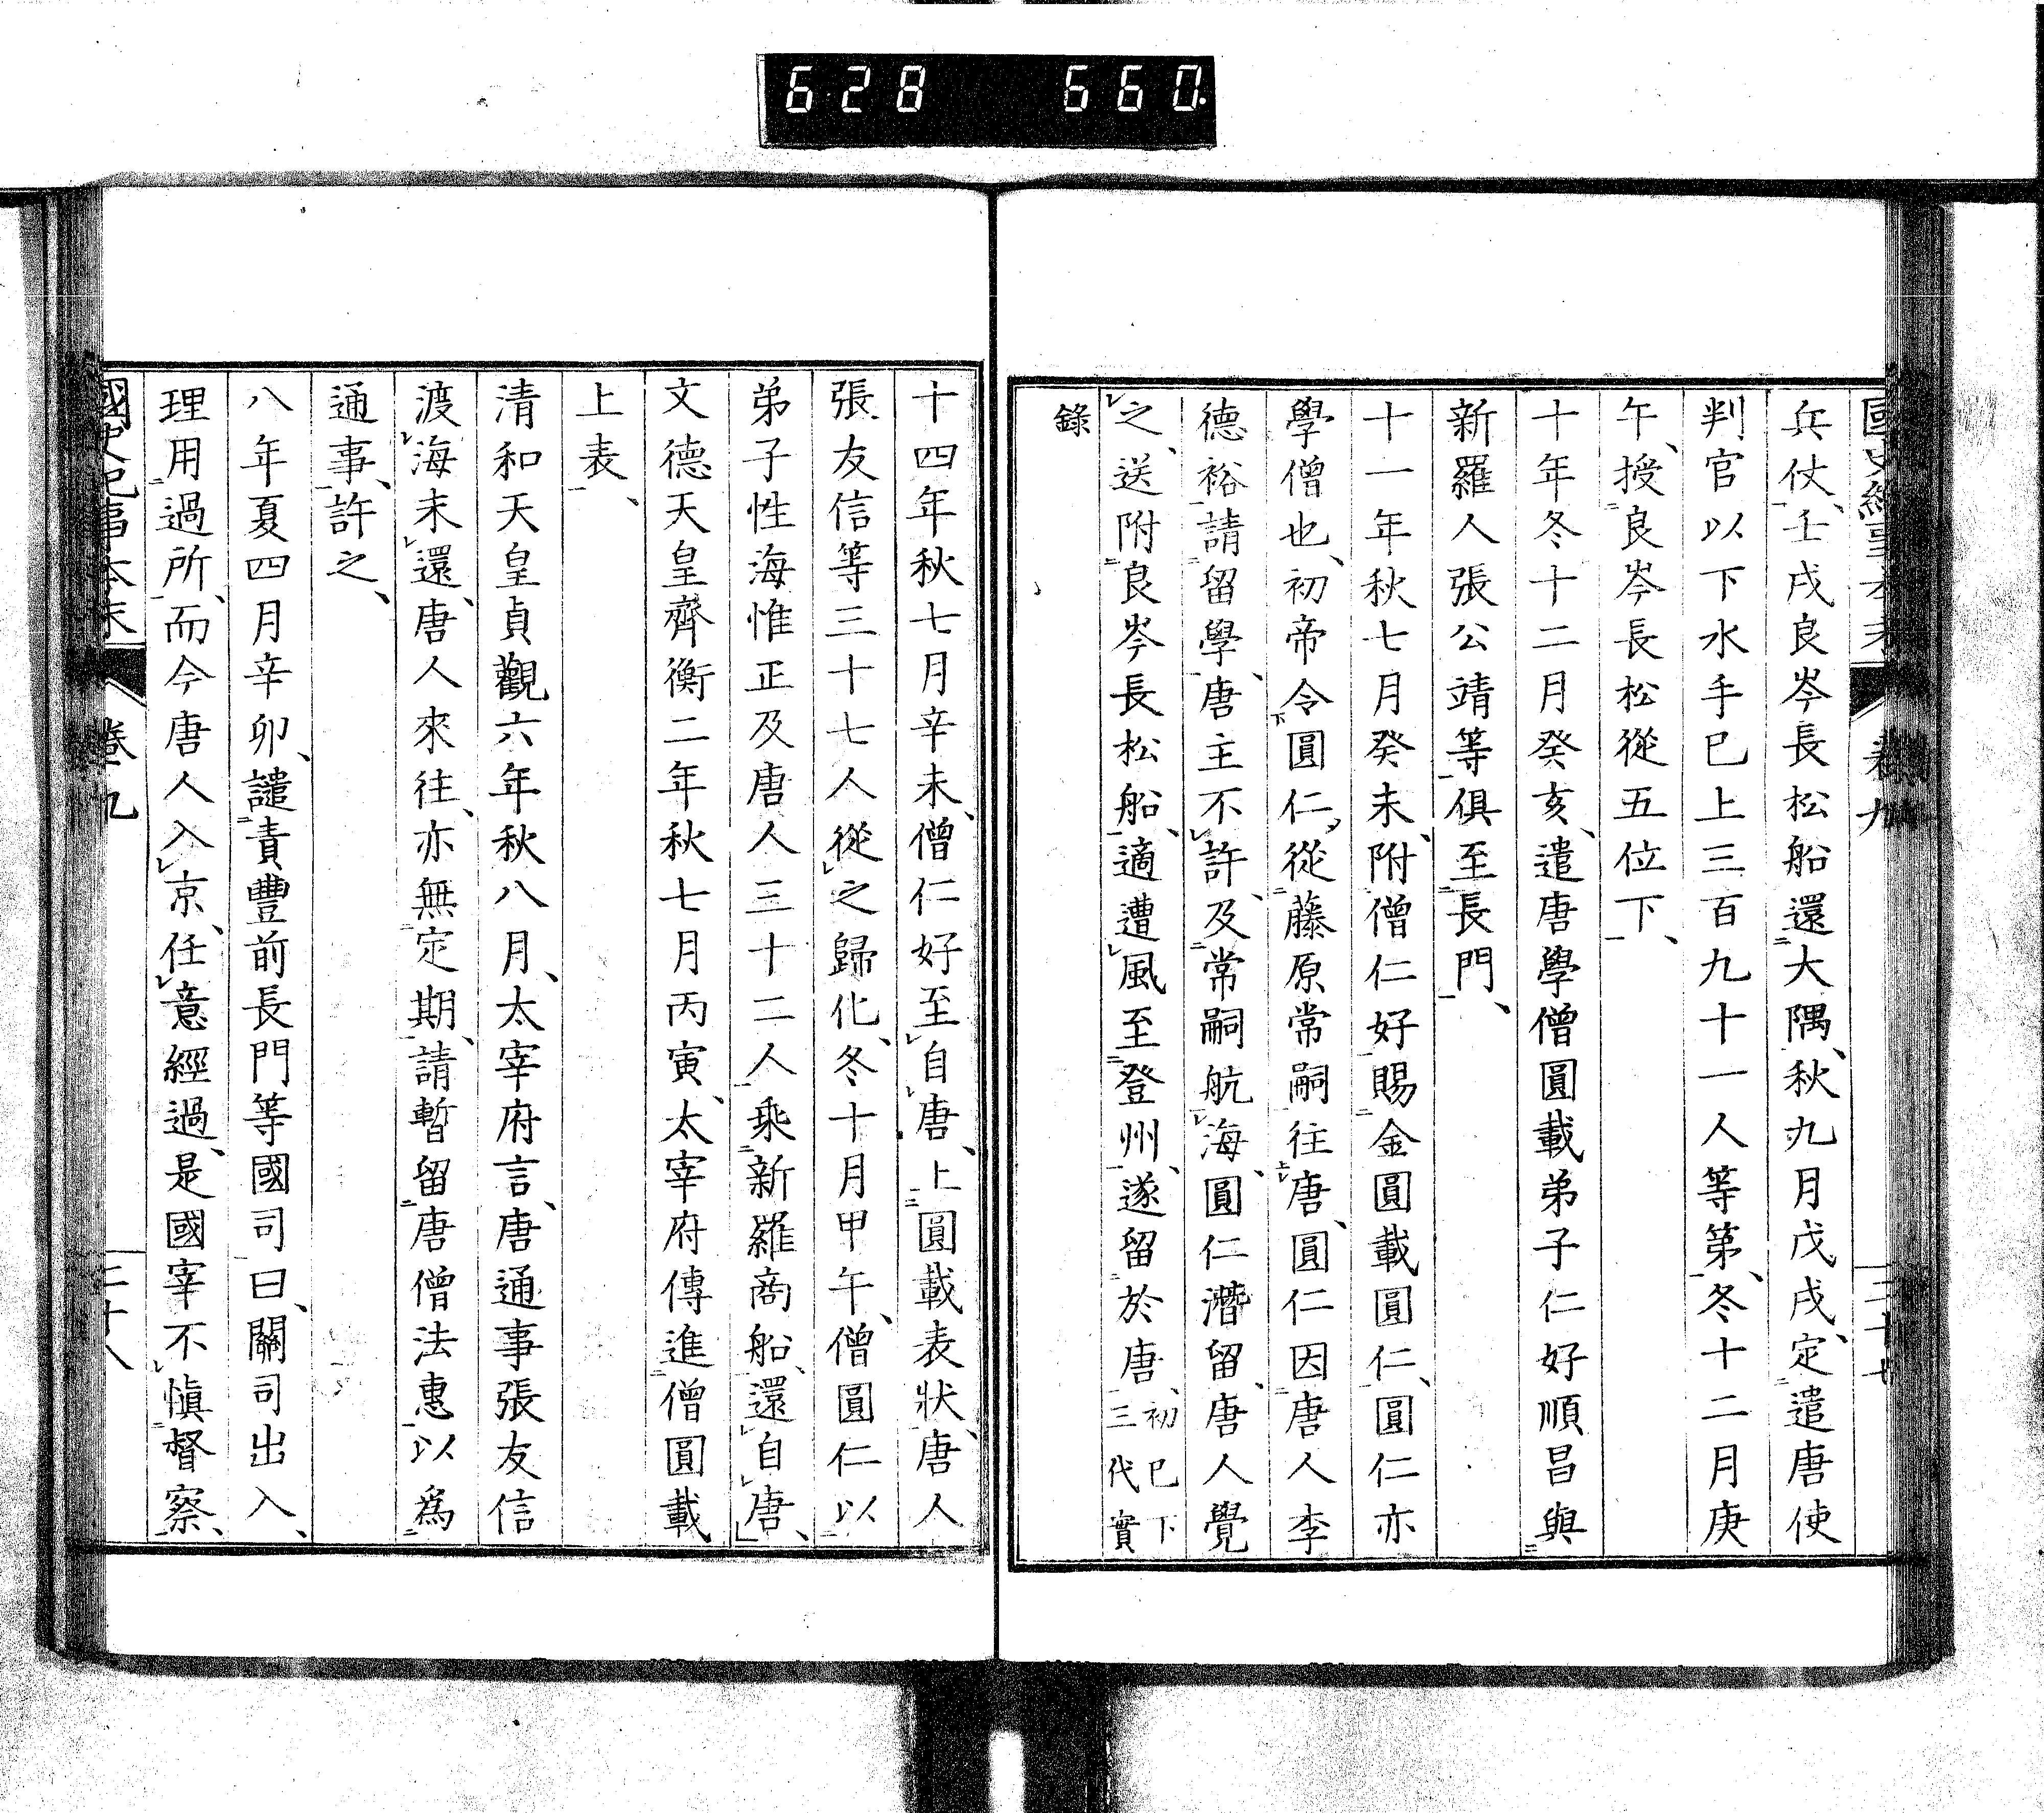 628 660.
國史紀事本末 卷九 二十七
兵仗、壬戌良岑長松船還大隅、秋九月戊戌、定遣唐使
判官以下水手已上三百九十一人等第、冬十二月庚
午、授良岑長松從五位下、
十年冬十二月癸亥、遣唐學僧圓載弟子仁好順昌與
新羅人張公靖等俱至長門、
十一年秋七月癸未、附僧仁好賜金圓載圓仁、圓仁亦
學僧也、初帝令圓仁從藤原常嗣往唐、圓仁因唐人李
德裕請留學、唐主不許、及常嗣航海、圓仁潛留、唐人覺
之、送附良岑長松船、適遭風至登州、遂留於唐、初已下三代實
錄
十四年秋七月辛未、僧仁好至自唐、上圓載表狀、唐人
張友信等三十七人從之歸化、冬十月甲午、僧圓仁以
弟子性海惟正及唐人三十二人乘新羅商船、還自唐、
文德天皇齊衡二年秋七月丙寅、太宰府傳進僧圓載
上表、
清和天皇貞觀六年秋八月、太宰府言、唐通事張友信
渡海未還、唐人來往、亦無定期、請暫留唐僧法惠以為
通事、許之、
八年夏四月辛卯、譴責豐前長門等國司曰、關司出入、
理用過所、而今唐人入京、任意經過、是國宰不愼督察、
國史紀事本末 卷九 二十八